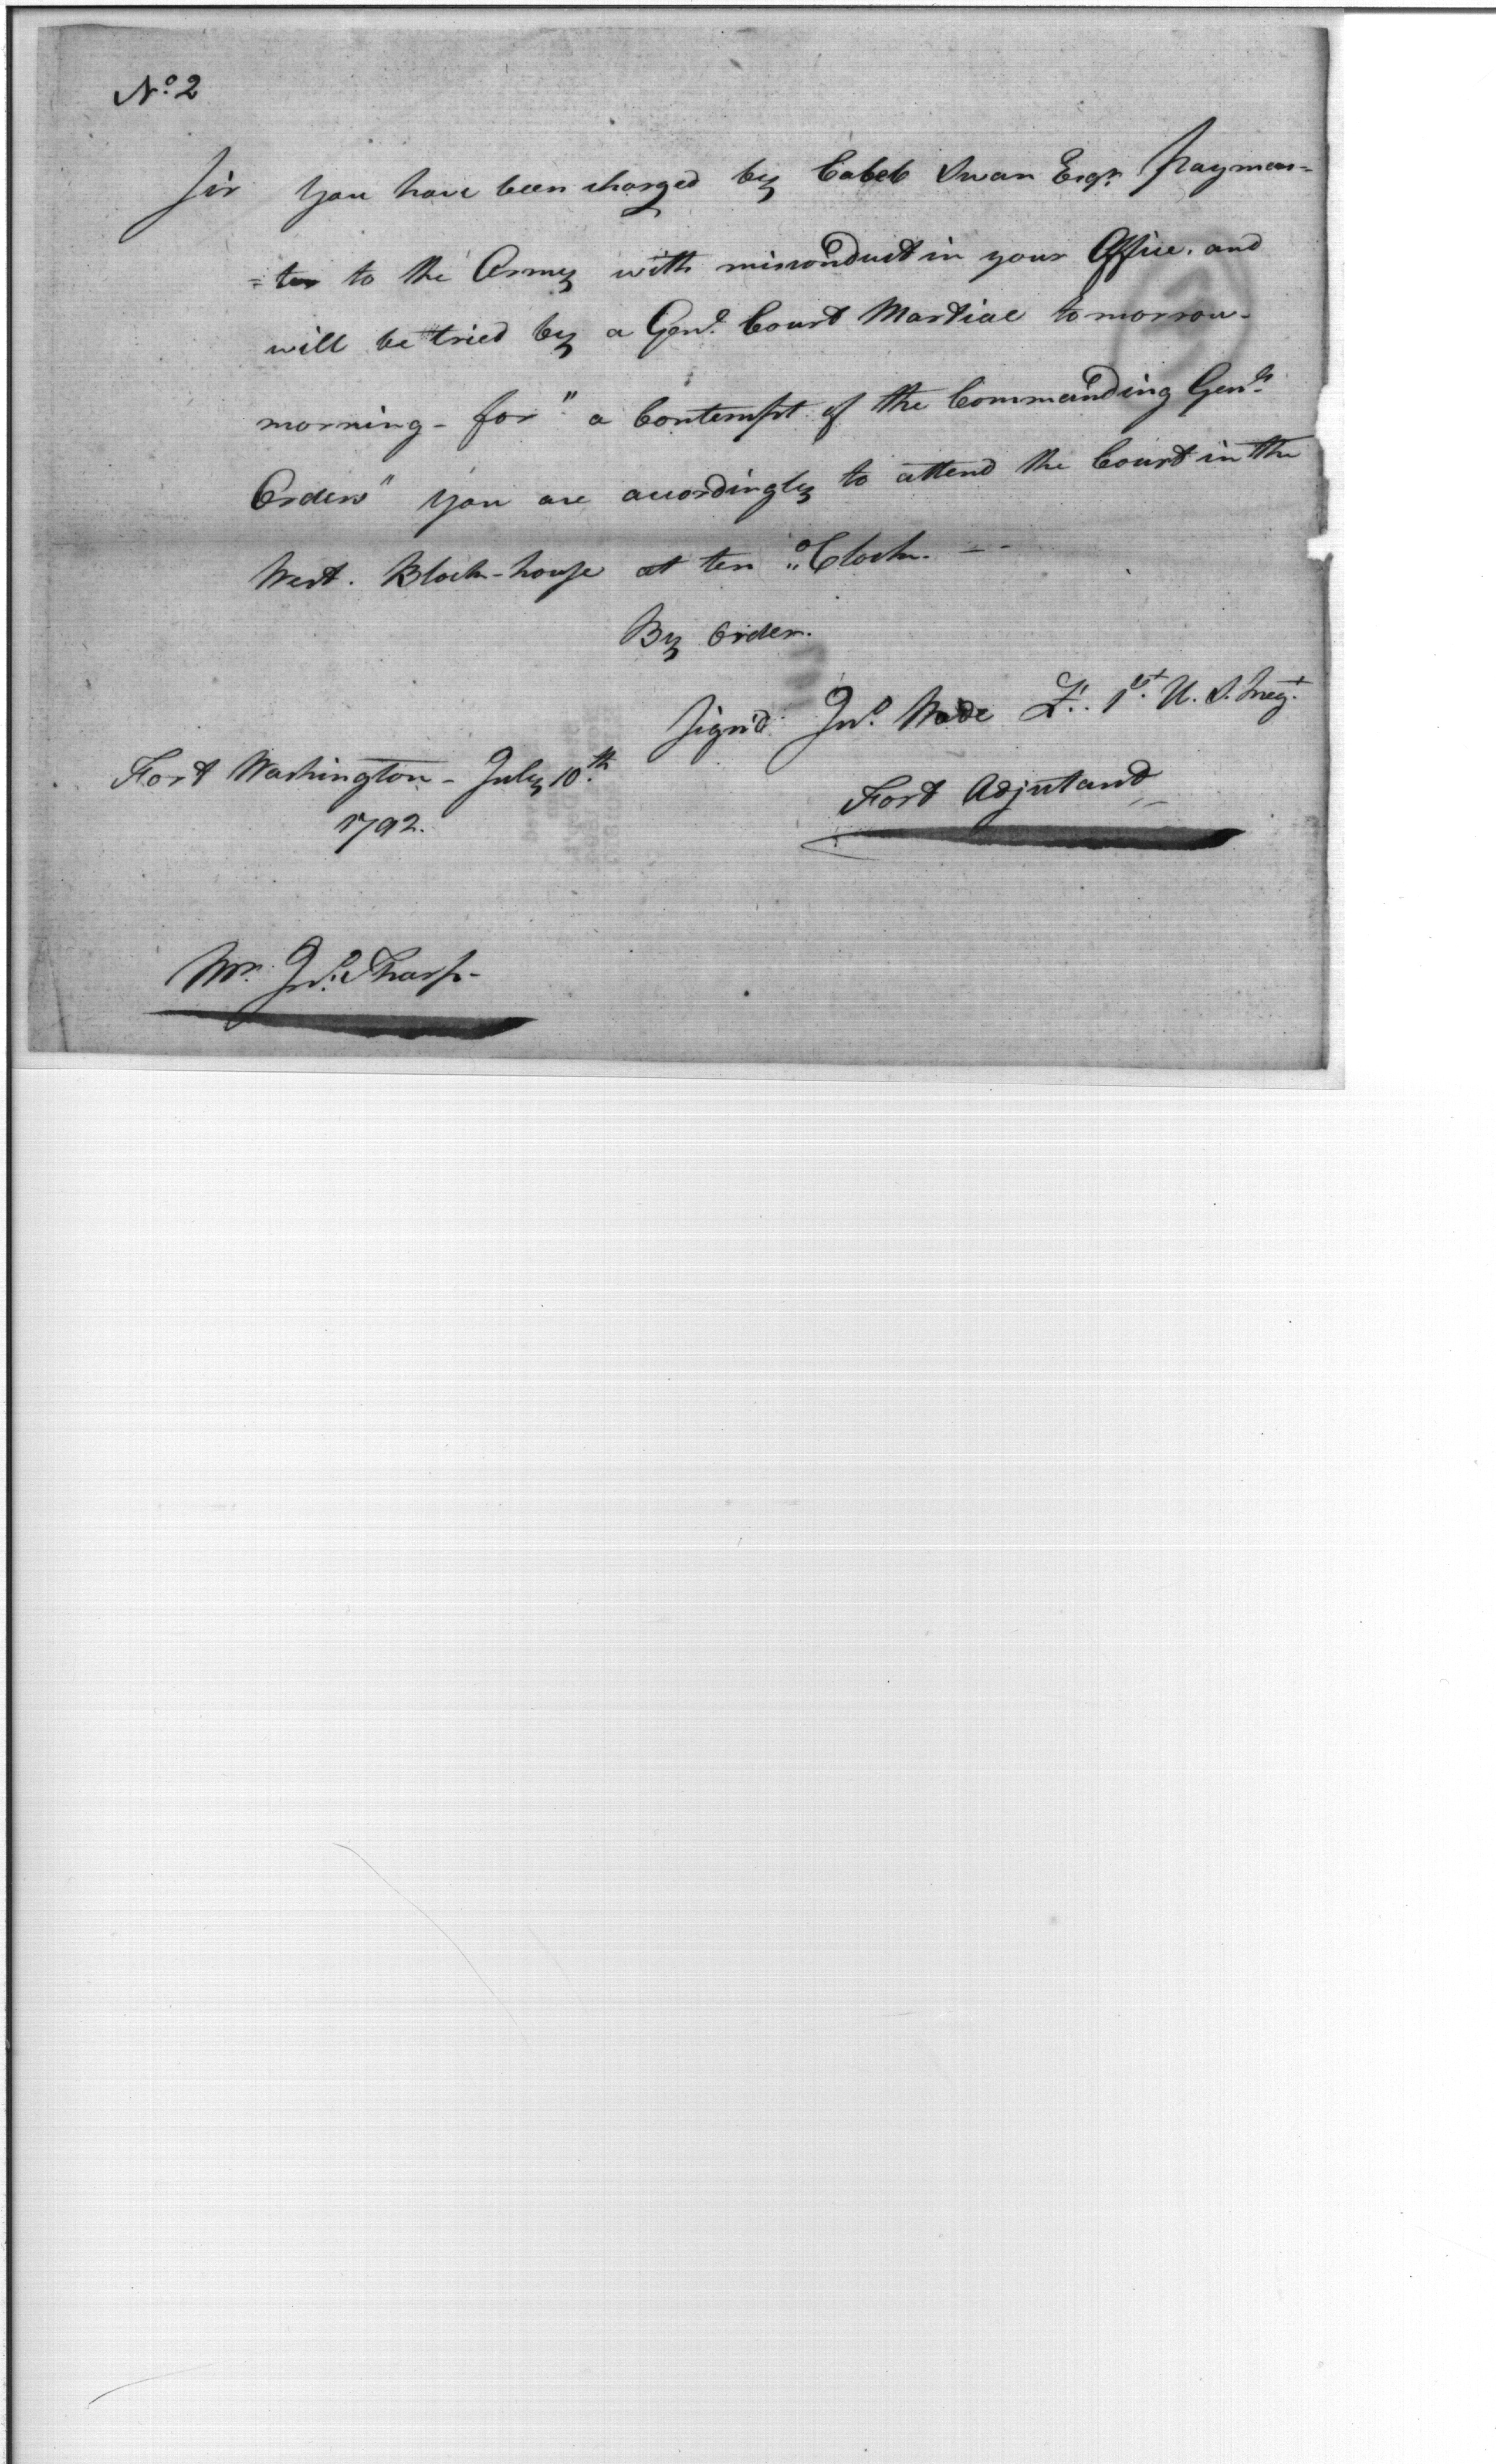 No. 2
Sir you have been charged by Caleb Swan Esqr. Paymas=
=ter to the Army with misconduct in your Office. and
will be tried by a Genl. Court Martial tomorrow-
morning - for "a Contempt of the Commanding Genls.
Orders" you are accordingly to attend the Court in the
West. Block-house at ten "oClock. --
By Order.
Sign'd Jno. Wade Lt. 1st. U. S. Regt.
Fort Washington - July 10th.
1792.
Fort Adjutant
Mr. Jno. Tharp-